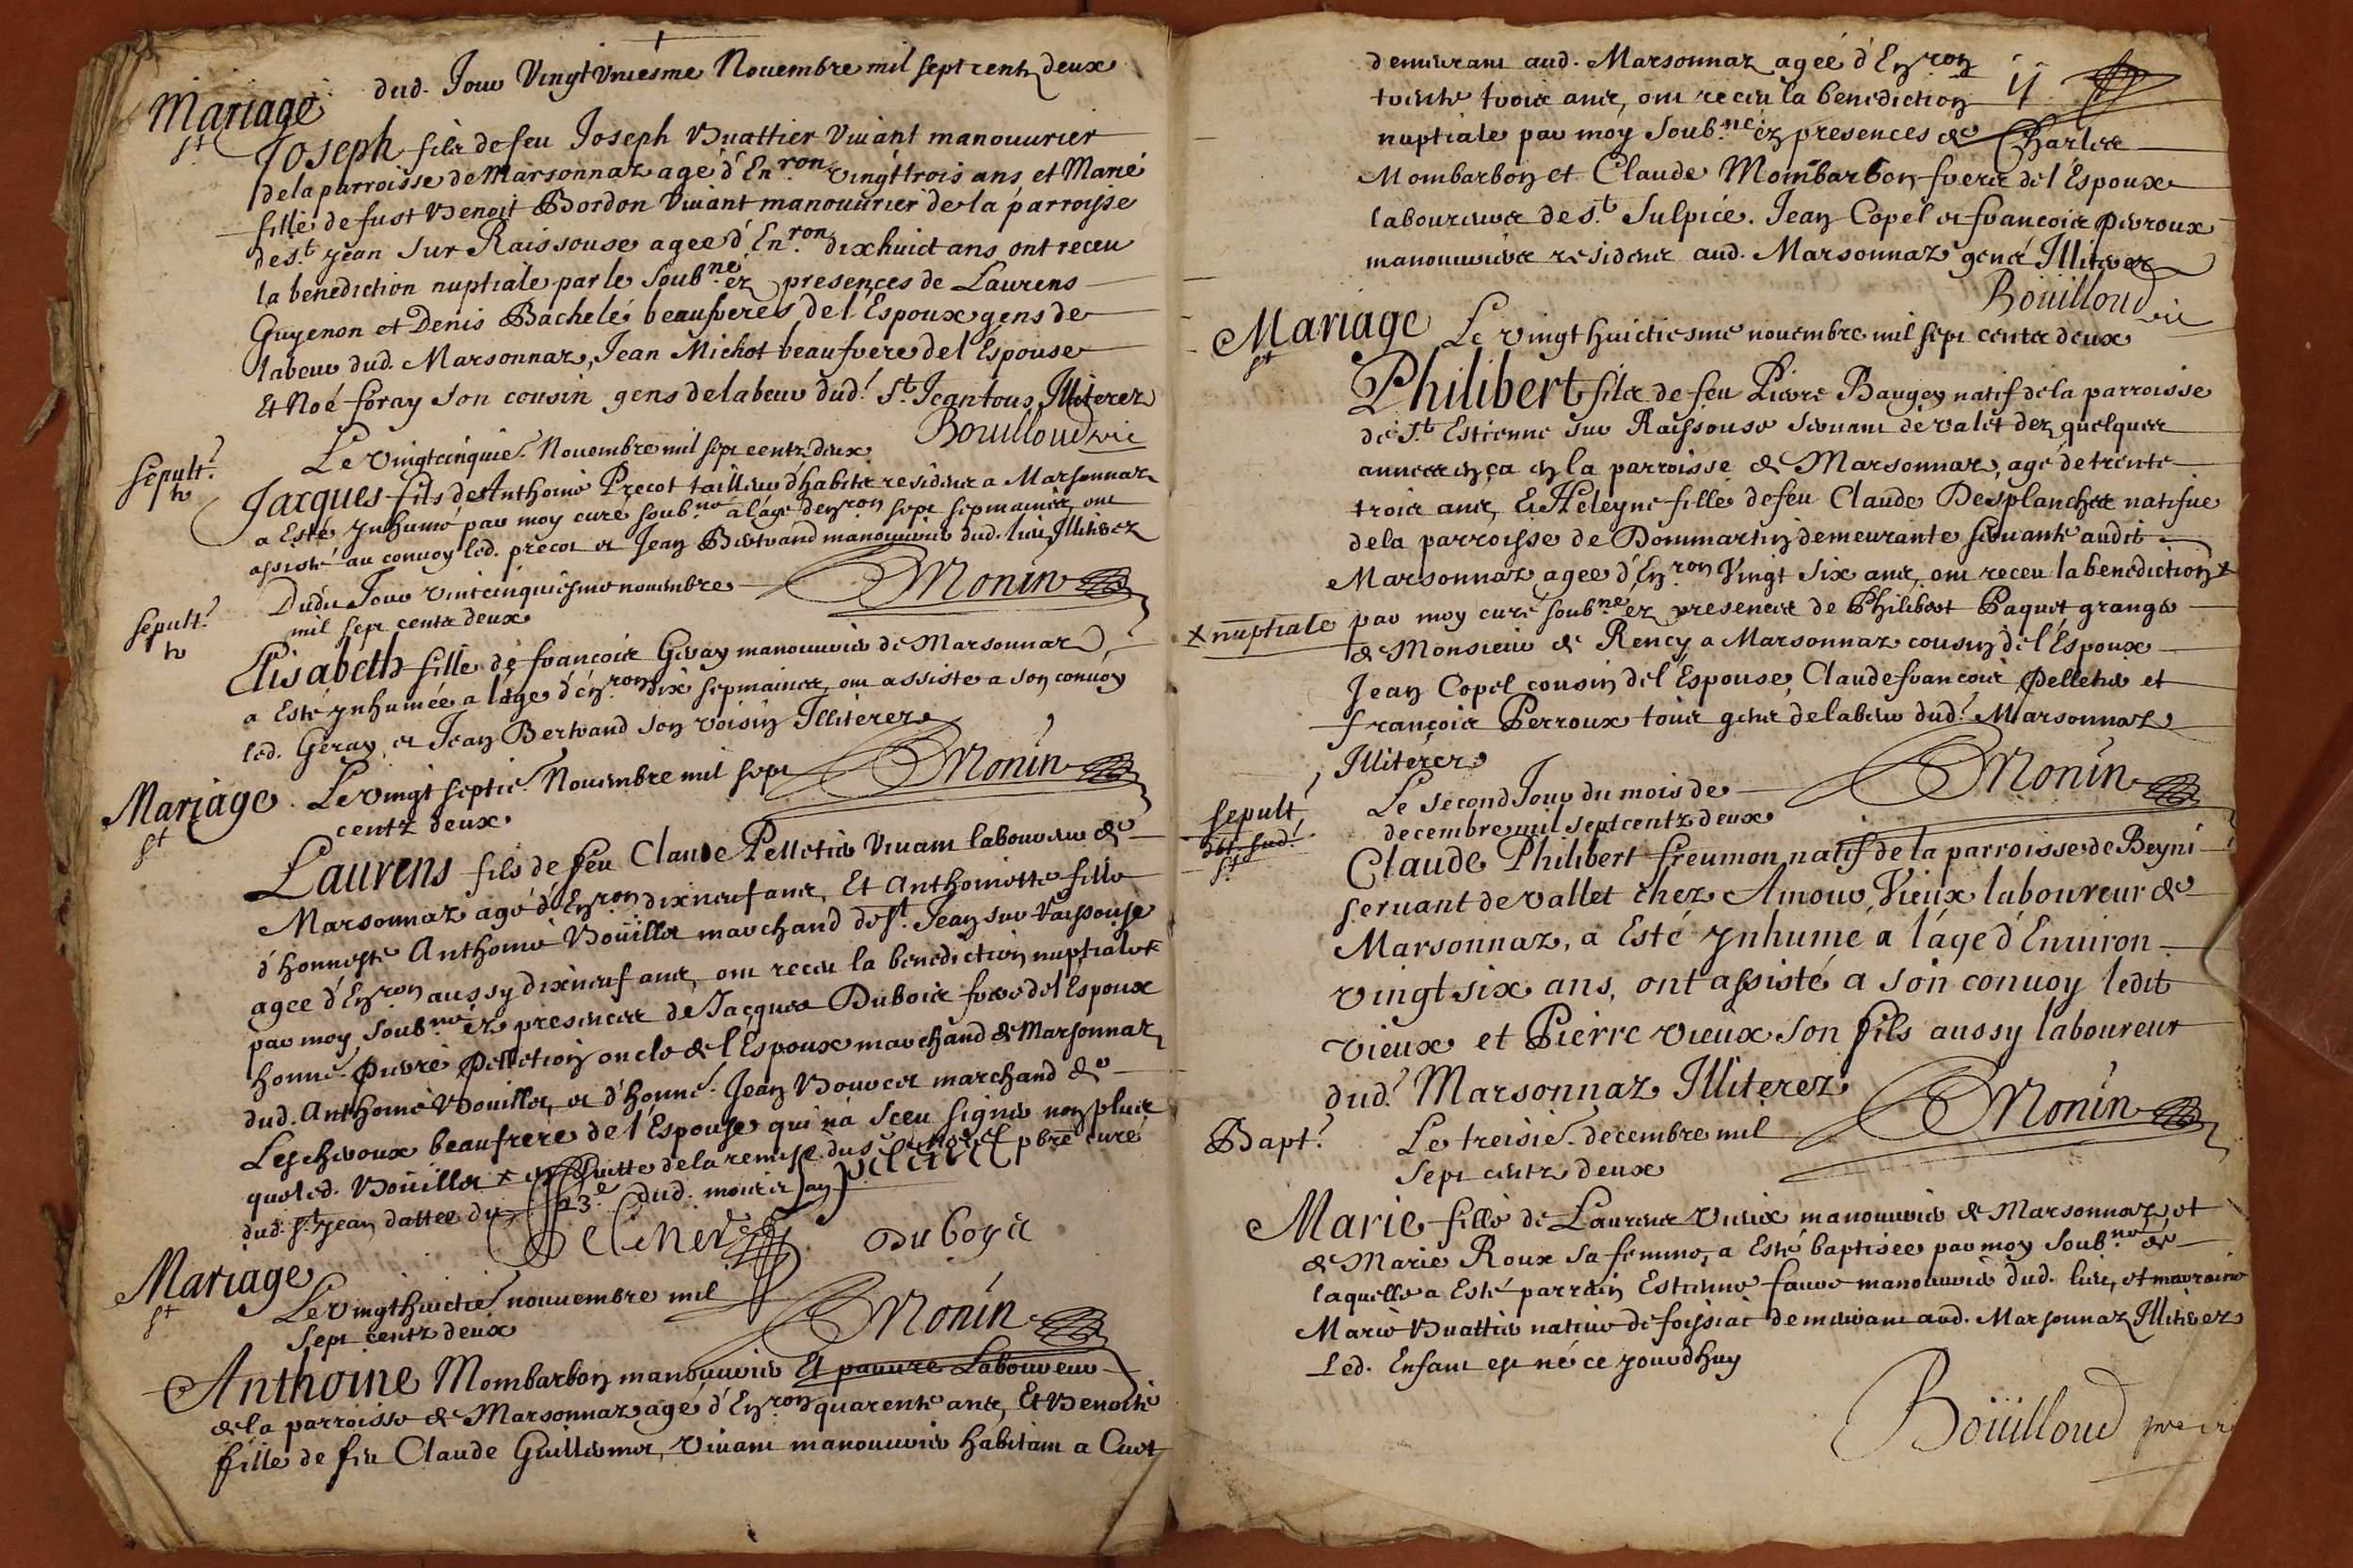 Mariage
st
dud. Jour Vingt Vniesme Nouembre mil sept centz deux
Joseph fils de feu Joseph Buattier Viuant manouurier
de la parroisse de Marsonnaz agé d'En.ron vingt trois ans et Marie
fille de fust Benoit Bordon Viuant manouurier de la parroisse
de s.t Jean sur Raissouse agee d'En.ron dix huict ans ont receu
la benediction nuptiale par le soub.né ez presences de Laurens
Guyenon et Denis Bachelé beaufreres de l'Espoux gens de
labeur dud. Marsonnaz, Jean Michot beaufrere de l'Espouse
Et Noé foray son cousin gens de labeur dud. S.t Jean tous Illiterez
Bouilloud vic
Sepult.
Le Vingtcinquie. Nouembre mil sept centz deux
Jacques fils de Anthoine Precot tailleur d'habits residens a Marsonnaz
a Esté ynhumé par moy curé soub.né a l'age denron sept sepmaines, ont
assisté au conuoy led. precot et Jean Bertrand manouurier dud. lieu Illiterez
Monin
Sepult.
Dudit Jour vintcinquiesme nouembre
mil sept centz deux
Elisabeth fille de francois Geray manouurier de Marsonnaz
a Esté ynhumée a l'age d'enron dix sepmaines, ont assisté a son conuoy
led. Geray et Jean Bertrand son voisin Illiterez
Monin
Mariage
st
Le vingt septie. Nouembre mil sept
centz deux
Laurens fils de feu Claude Pelletier Viuant laboureur de
Marsonnaz agé d'Enron dixneuf ans, Et Anthoinette fille
d'honneste Anthoine Boüiller marchand de s.t Jean sur Raissouse
agee d'Enron aussy dixneuf ans, ont receu la benediction nuptiale
par moy soub.né ez presences de Jacques Dubois frere de l'Espoux
honne. Pierre Pelletier oncle de l'Espoux marchand de Marsonnaz
dud. Anthoine Bouiller, et d'honne. Jean
marchand de
Lescheroux beaufrere de l'Espouse qui n'a sceu signer non plus
que led. Boüiller x en suitte de la remise du s.r
pbre curé
dud. st Jean dattee du 23.e dud. mois et an
Duboys
Monin
Mariage
st
Le vingthuictie. nouuembre mil
sept centz deux
Anthoine Mombarbon manouurier Et pauure Laboureur
de la parroisse de Marsonnaz agé d'Enron quarente ans, Et Benoite
fille de feu Claude Guillermet, Viuant manouurier habitant a Cuet
demeurant aud. Marsonnaz agée d'Enron
trente trois ans, ont receu la benediction
nuptiale par moy Soub.né éz presences de Charles
Mombarbon et Claude Mombarbon freres de l'Espoux
laboureurs de s.t Sulpice. Jean Copel et francois Perroux
manouuriers residens aud. Marsonnaz gens Illiterez
Bouilloud vic
Mariage
st
Le vingt huictiesme nouembre mil sept centz deux
Philibert fils de feu Pierre Baugey natif de la parroisse
de S.t Estienne sur Raissouse seruant de valet dez quelques
annees en ça en la parroisse de Marsonnaz, agé de trente
trois ans, Et Heleyne fille de feu Claude Desplanches natifue
de la parroisse de Dommartin demeurante seruante audit
Marsonnaz agee d'Enron Vingt six ans, ont receu la benediction x
x nuptiale
par moy curé soub.né ez presences de Philibert Paquet granger
de Monsieur de Rency a Marsonnaz cousin de l'Espoux
Jean Copel cousin de l'Espouse, Claude francois Pelletier et
françois Perroux tous gens de labeur dud. Marsonnaz
Illiterez
Monin
Sepult.
st
Le second Jour du mois de
decembre mil septcentz deux
Claude Philibert freumon natif de la parroisse de Beyni
seruant de vallet chez Amour Vieux laboureur de
Marsonnaz, a Esté ynhumé a l'áge d'Enuiron
vingt six ans, ont assisté a son conuoy ledit
vieux et Pierre vieux son fils aussy laboureur
dud. Marsonnaz Illiterez
Monin
Bapt.
Le treisie. decembre mil
sept centz deux
Marie fille de Laurens Vieux manouurier de Marsonnaz et
de Marie Roux sa femme, a Esté baptisée par moy soub.né de
laquelle a Esté parrain Estienne faure manouurier dud. lieu, et marraine
Marie Buattier natiue de foissiat demeurant aud. Marsonnaz Illiterez
Led. Enfant est né ce jourdhuy
Boüilloud